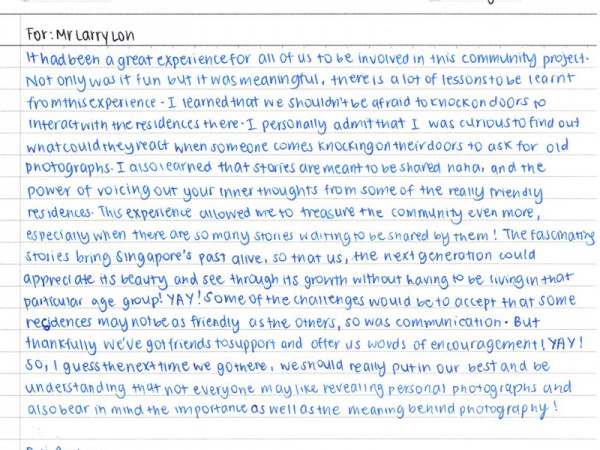 For: Mr Larry Lon
It had been a great experience for all of us to be involved in this community project.
Not only was it fun but it was meaningful, there is a lot of lessons to be learnt
from this experience. I learned that we shouldn't be afraid to knock on doors to
interact with the residences there. I personally admit that I was curious to find out
what could they react when someone comes knocking on their doors to ask for old
photographs. I also learned that stories are meant to be shared haha, and the
power of voicing out your inner thoughts from some of the really friendly
residences. This experience allowed me to treasure the community even more,
especially when there are so many stories waiting to be shared by them! The fascinating
stories bring Singapore's past alive, so that us, the next generation could
appreciate its beauty and see through its growth without having to be living in that
particular age group! YAY! Some of the challenges would be to accept that some
residences may not be as friendly as the others, so was communication. But
thankfully we've got friends to support and offer us words of encouragement! YAY!
So, I guess the next time we go there, we should really put in our best and be
understanding that not everyone may like revealing personal photographs and
also bear in mind the importance as well as the meaning behind photography!